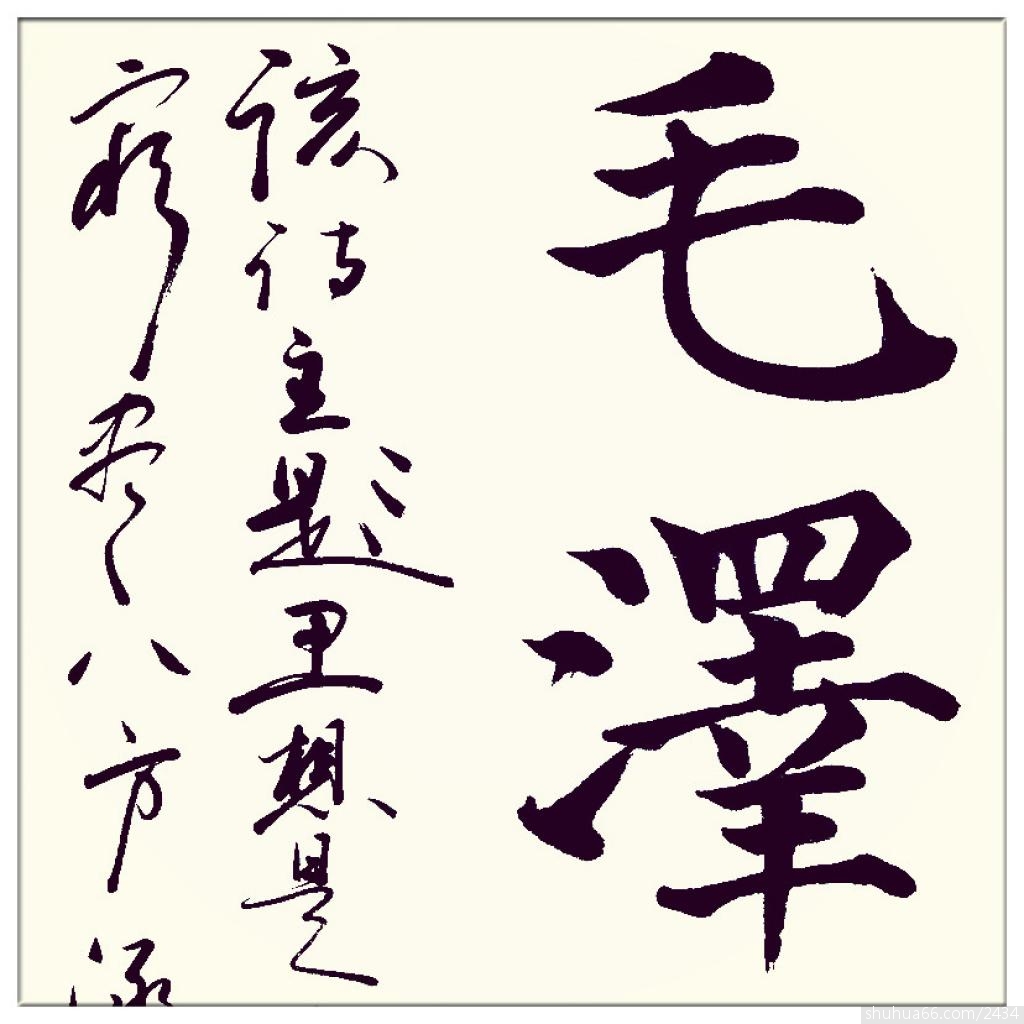 毛澤
该诗主题里想是
穷尽八方
shuhua66.com/2434